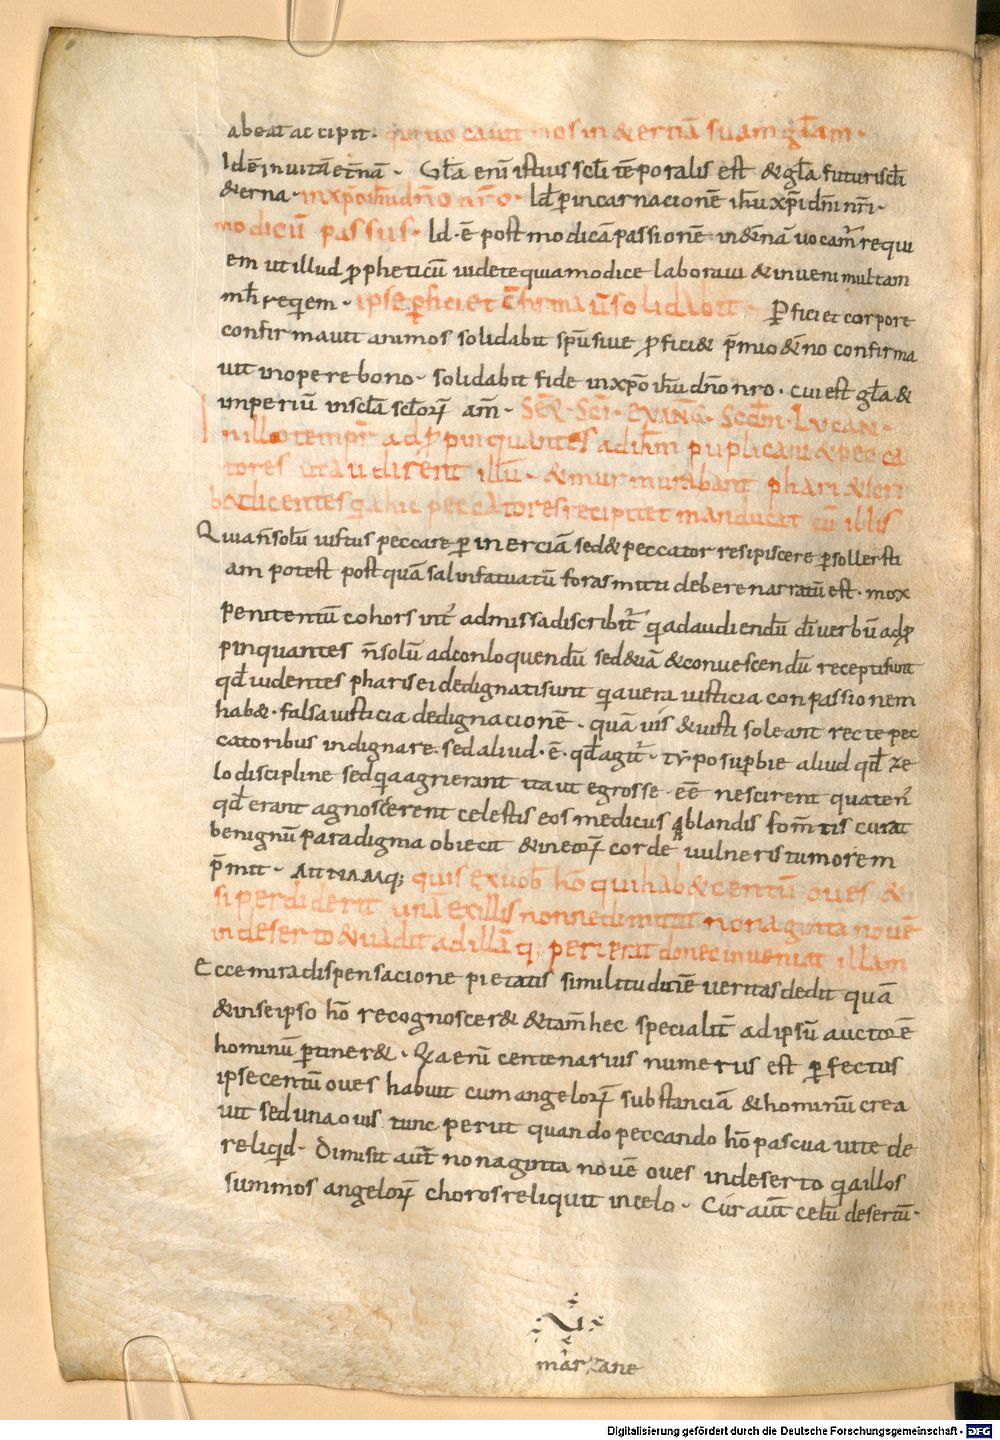 abeat accipit. qui uocauit nos in &ernā suam gl̄am.
Id ē in uitā et̄nā. Gl̄a enī istius scl̄i tēporalis est & gl̄a futuri scl̄i
&erna. in xp̄o ih̄u dn̄o nr̄o. Id ꝑ incarnacionē ih̄u xp̄i dn̄i nr̄i.
modicū passus. Id. ē post modicā passionē in &̄nā uocam̄ requi
em ut illud ꝓpheticū uidete quia modice laboraui & inueni multam
mh̄i requiem. ipse ꝑficiet c̄firmau̅ solidabit. Ꝑficiet corpore
confirmauit animos solidabit sp̄u siue ꝓfici& p̄mio &̄no confirma
uit in opere bono. solidabit fide in xp̄o ih̄u dn̄o nro. cui est gl̄a &
imperiū in scl̄a scl̄oꝝ am̄. Seq̄. Scī. Evang̅. Scd̄m. Lvcan.
In illo tempr̄ adꝓpinquantes ad ih̄m puplicani & pecca
tores ut audirent illū. & murmurabant phari & scri
b& dicentes q̄a hic peccatores recipit et manducat cū illis
Quia n̄ solū iustus peccare ꝑ inerciā sed & peccator resipiscere ꝑ sollersti
am potest postquā sal infatuatū foras mitti debere narratū est. mox
penitentū cohors int̄ admissa discribit̄ q̄ ad audiendū dī uerbū adꝓ
pinquantes n̄ solū ad conloquendū sed &iā & conuescendū recepti sunt
qd̄ uidentes pharisei dedignati sunt q̄a uera iusticia conpassionem
hab&. falsa iusticia dedignacionē. quā uīs & iusti soleant recte pec
catoribus indignare. sed aliud. ē. qd̄ agit̄. typo suꝑbie aliud qd̄ ze
lo discipline sed q̄a agri erant ita ut egros se. eē nescirent quaten̄
qd̄ erant agnoscerent celestis eos medicus blandis fom̄tis curat
benignū paradigma obiecit & in eoꝝ corde uulneris tumorem
p̄mit. Ait namq; quis ex uob̄ hō qui hab& centū oues &
si perdiderit unā ex illis nonne dimittit nonaginta nouē
in deserto & uadit ad illā q; perierat donec inueniat illam
Ecce mira dispensacione pietatis similitudinē ueritas dedit quā
& in se ipso hō recognoscer& & tam̄ hec specialit̄ ad ipsū auctorē
hominū ꝑtiner&. Q̄a enī centenarius numerus est ꝑfectus
ipse centū oues habuit cum angeloꝝ substanciā & hominū crea
uit sed una ouis tunc periit quando peccando hō pascua uite de
reliq̄d. Dimisit aut̄ nonaginta nouē oues in deserto q̄a illos
summos angeloꝝ choros reliquit in celo. Cur aut̄ celū desertū.
marzane
Digitalisierung gefördert durch die Deutsche Forschungsgemeinschaft - DFG